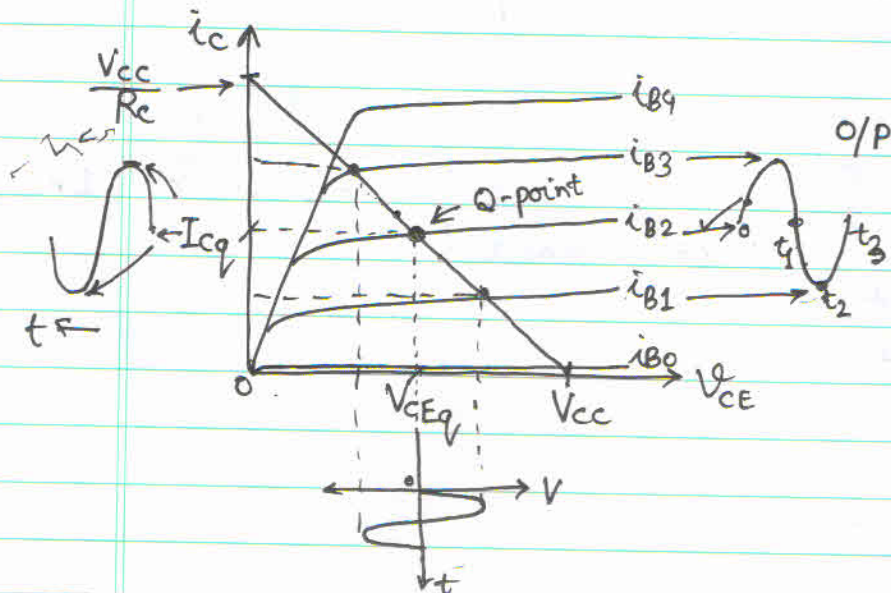 i_C
V_CC
R_C
i_B4
O/P
i_B3
Q-point
I_Cq
i_B2
o
t_1
t_3
i_B1
t_2
t
i_B0
O
V_CEq
V_CC
V_CE
o
V
t